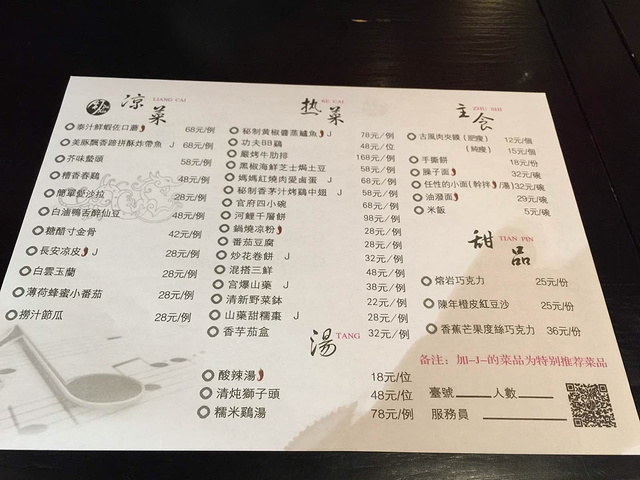 涼菜 LIANG CAI
泰汁鮮蝦佐口蘑 68元/例
美豚飄香蹄拼酥炸帶魚 J 68元/例
芥味墊頭 58元/例
糟香春鷄 48元/例
簡單愛沙拉 28元/例
白滷鴨舌醉仙豆 48元/例
糖醋寸金骨 42元/例
長安凉皮 J 28元/例
白雲玉蘭 28元/例
薄荷蜂蜜小番茄 28元/例
撈汁節瓜 28元/例
热菜 RE CAI
秘制黄椒醬蒸鱸魚 J 78元/例
功夫BB鷄 48元/位
嚴烤牛肋排 168元/例
黑椒海鮮芝士焗土豆 58元/例
媽媽紅燒肉愛鹵蛋 J 68元/例
秘制香茅汁烤鷄中翅 J 58元/例
官府四小碗 68元/例
河鯉千層餅 98元/例
鍋燒凉粉 28元/例
番茄豆腐 28元/例
炒花卷餅 J 32元/例
混搭三鮮 48元/例
宫爆山藥 J 38元/例
清新野菜鉢 22元/例
山藥甜糯棗 J 28元/例
香芋茄盒 32元/例
湯 TANG
酸辣湯 18元/位
清炖獅子頭 48元/位
糯米鷄湯 78元/例
主食 ZHU SHI
古風肉夾饃 (肥瘦) 12元/個
(純瘦) 15元/個
手撕餅 18元/份
臊子面 32元/碗
任性的小面(幹拌/湯) 32元/碗
油潑面 29元/碗
米飯 5元/碗
甜品 TIAN PIN
熔岩巧克力 25元/份
陳年橙皮紅豆沙 25元/份
香蕉芒果度絲巧克力 36元/份
备注：加-J-的菜品为特别推荐菜品
臺號 人數
服務員